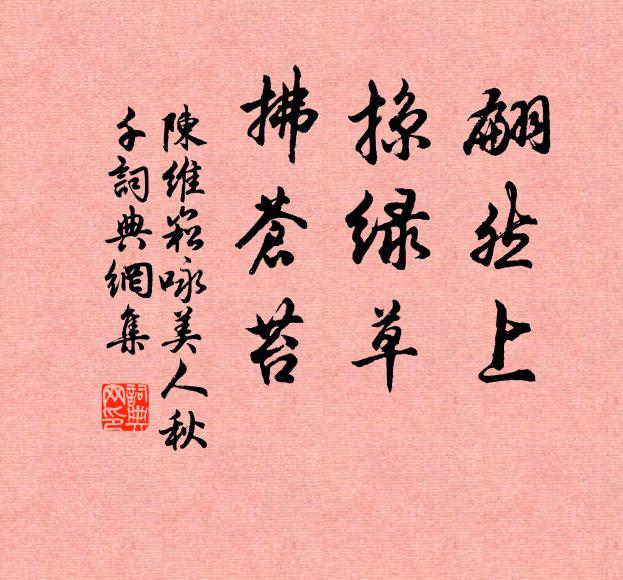 翩然上
掠绿草
拂蒼苔
陳維崧咏美人秋
千詞典網集
詞典
网印